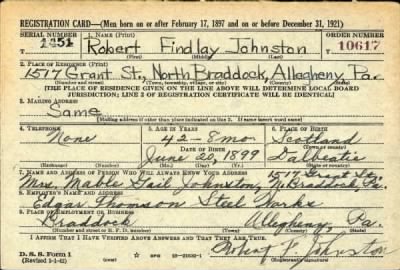 REGISTRATION CARD—(Men born on or after February 17, 1897 and on or before December 31, 1921)
SERIAL NUMBER 1. NAME (Print) ORDER NUMBER
1451 Robert Findlay Johnston 10617
(First) (Middle) (Last)
2. PLACE OF RESIDENCE (Print)
1517 Grant St., North Braddock, Allegheny, Pa.
(Number and street) (Town, township, village, or city) (County) (State)
[THE PLACE OF RESIDENCE GIVEN ON THE LINE ABOVE WILL DETERMINE LOCAL BOARD
JURISDICTION; LINE 2 OF REGISTRATION CERTIFICATE WILL BE IDENTICAL]
3. MAILING ADDRESS
Same
[Mailing address if other than place indicated on line 2. If same insert word same]
4. TELEPHONE 5. AGE IN YEARS 6. PLACE OF BIRTH
None 42-8 mo Scotland
DATE OF BIRTH
June 20, 1899 Dalbeatie
(Exchange) (Number) (Mo.) (Day) (Yr.) (Town or county) (State or country)
7. NAME AND ADDRESS OF PERSON WHO WILL ALWAYS KNOW YOUR ADDRESS 1517 Grant St.
Mrs. Gail Johnston, N. Braddock, Pa.
8. EMPLOYER'S NAME AND ADDRESS
Edgar Thomson Steel Works
9. PLACE OF EMPLOYMENT OR BUSINESS
Braddock Allegheny, Pa.
(Number and street or R. F. D. number) (Town) (County) (State)
I AFFIRM THAT I HAVE VERIFIED ABOVE ANSWERS AND THAT THEY ARE TRUE.
D. S. S. Form 1 Robert F. Johnston
(Revised 1-1-42)